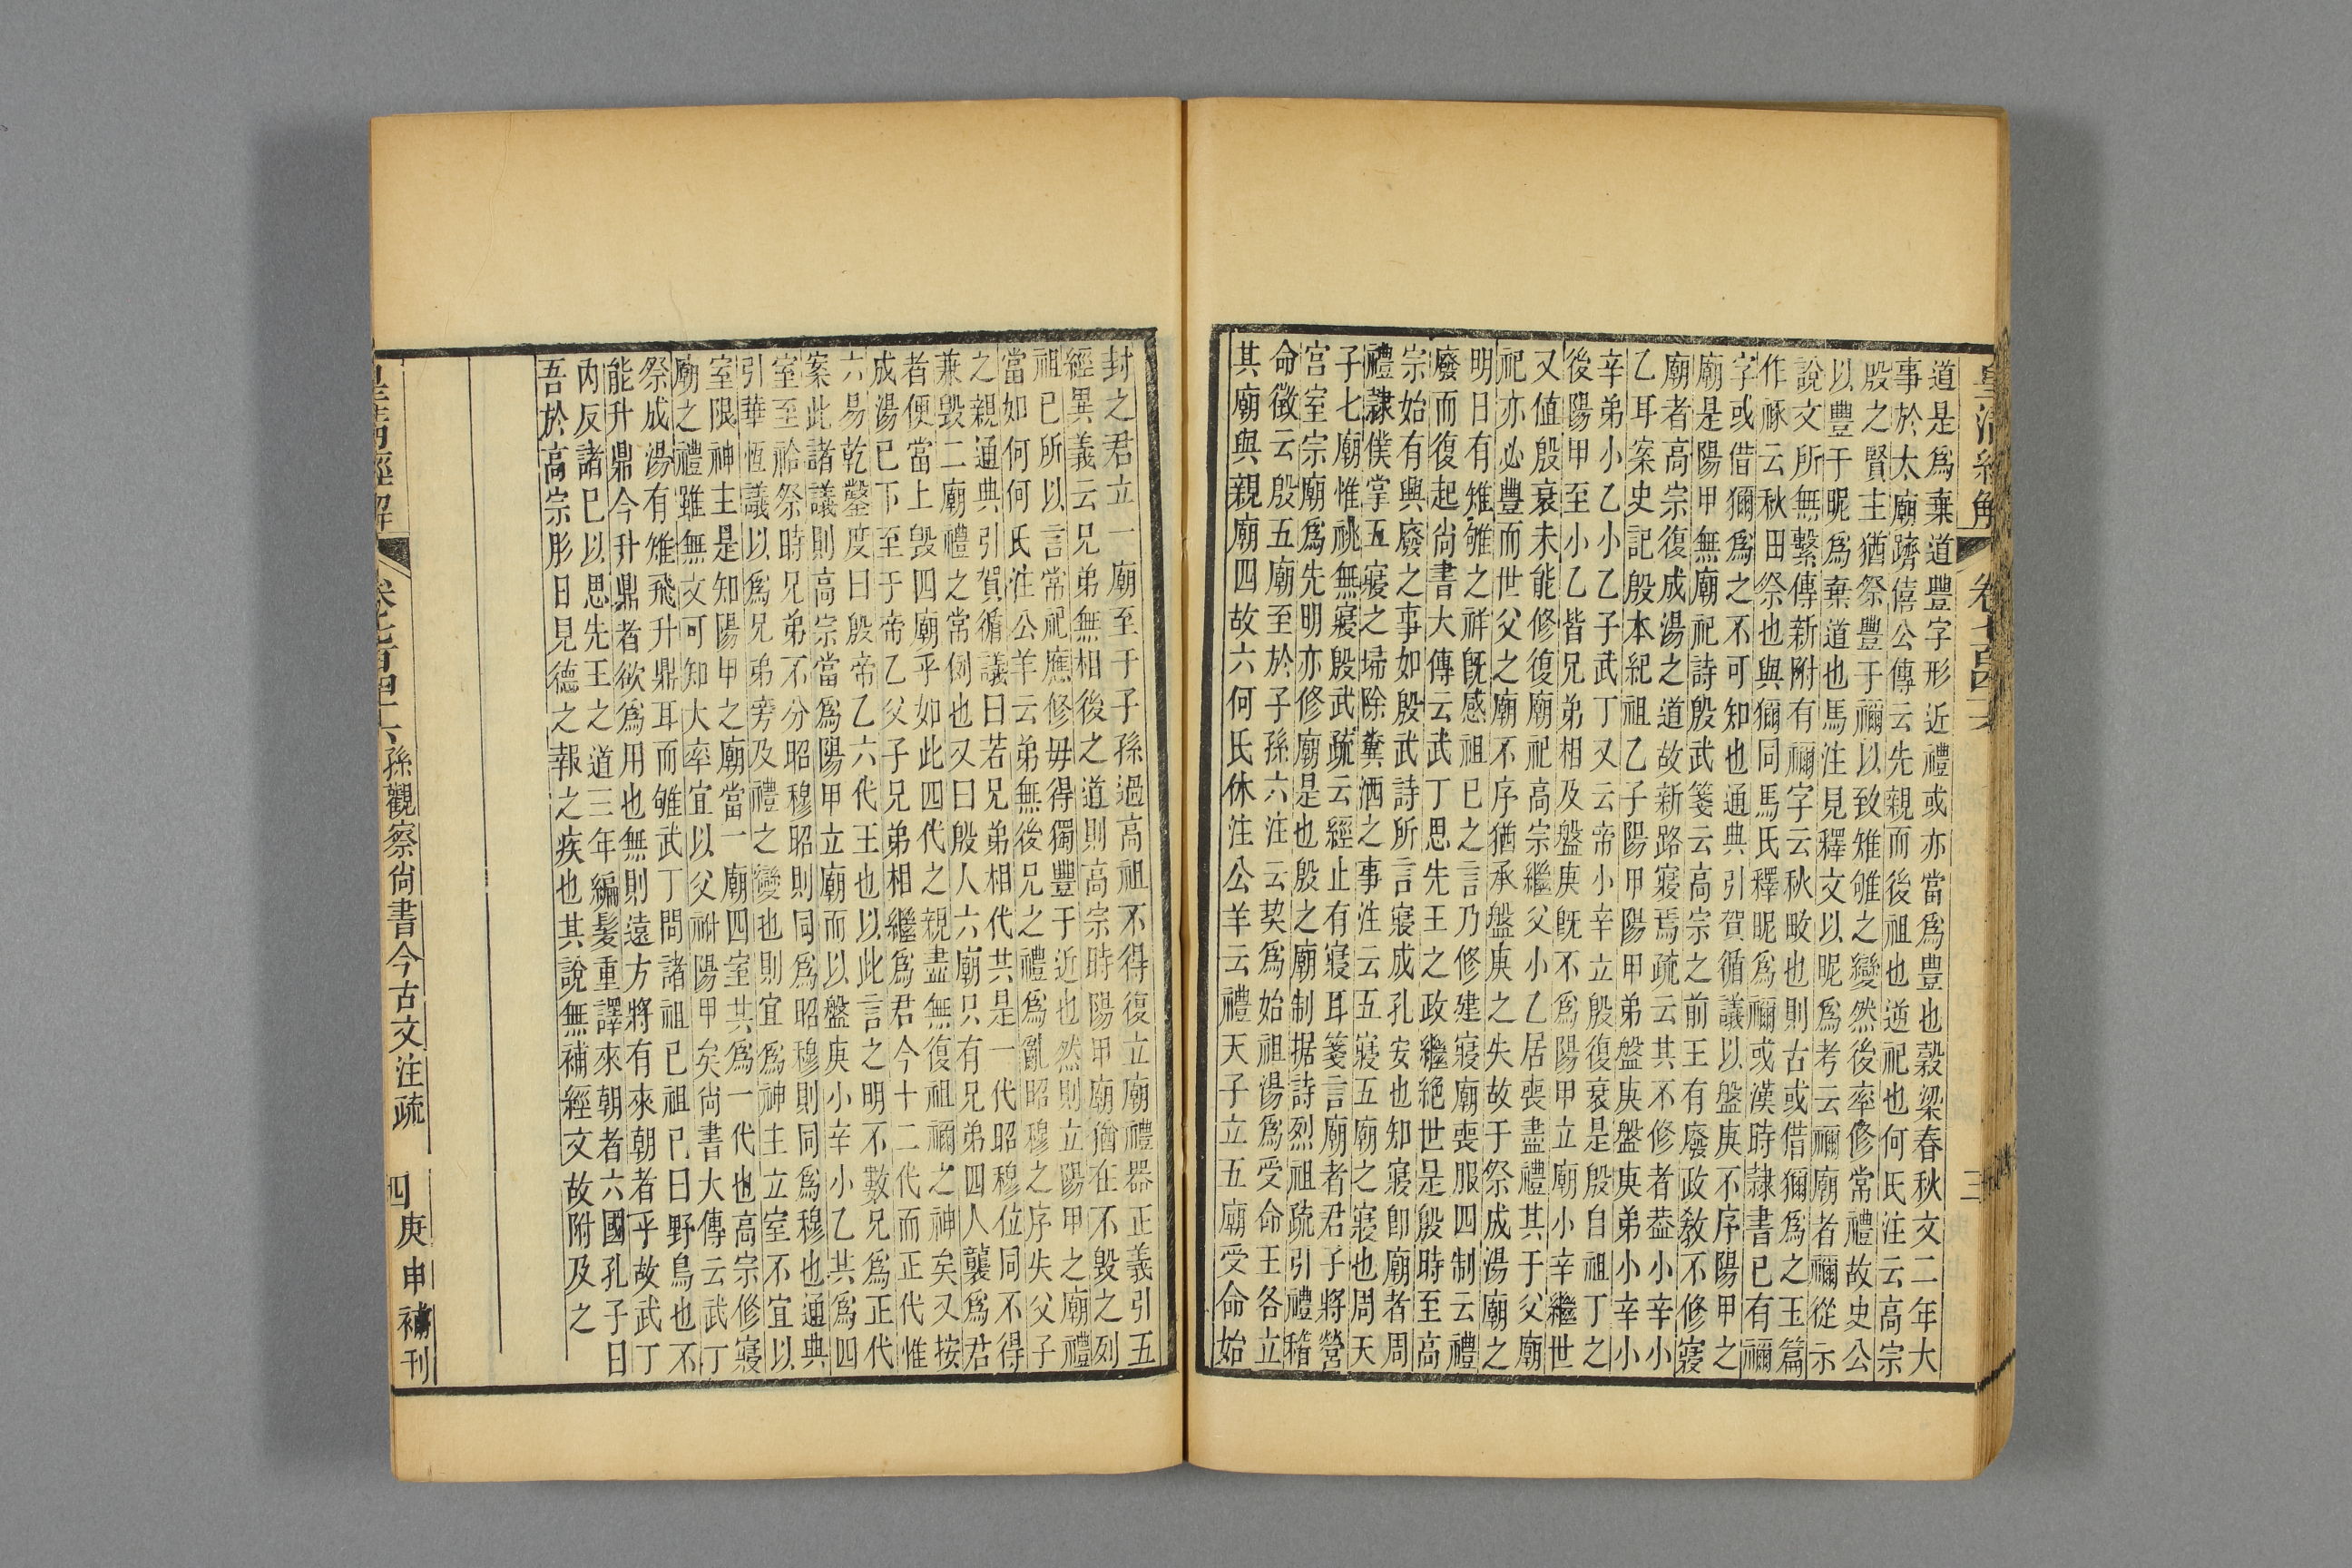 皇清經解
卷七百四十六
三
道是爲棄道豐字形近禮或亦當爲豊也穀梁春秋文二年大
事於太廟躋僖公傳云先親而後祖也逆祀也何氏注云高宗
殷之賢主猶祭豐于禰以致雉雊之變然後率修常禮故史公
以豐于昵爲棄道也馬注見釋文以昵爲考云禰廟者禰從示
說文所無繫傳新附有禰字云秋畋也則古或借獮爲之玉篇
作䄠云秋田祭也與獮同馬氏釋昵爲禰或漢時隸書已有禰
字或借獮爲之不可知也通典引賀循議以盤庚不序陽甲之
廟是陽甲無廟祀詩殷武箋云高宗之前王有廢政教不修寢
廟者高宗復成湯之道故新路寢焉疏云其不修者葢小辛小
乙耳案史記殷本紀祖乙子陽甲陽甲弟盤庚盤庚弟小辛小
辛弟小乙小乙子武丁又云帝小辛立殷復衰是殷自祖丁之
後陽甲至小乙皆兄弟相及盤庚旣不爲陽甲立廟小辛繼世
又值殷衰未能修復廟祀高宗繼父小乙居喪盡禮其于父廟
祀亦必豐而世父之廟不序猶承盤庚之失故于祭成湯廟之
明日有雉雊之祥旣感祖已之言乃修建寢廟喪服四制云禮
廢而復起尙書大傳云武丁思先王之政繼絕世是殷時至高
宗始有興廢之事如殷武詩所言寢成孔安也知寢卽廟者周
禮隸僕掌五寢之埽除糞洒之事注云五寢五廟之寢也周天
子七廟惟祧無寢殷武疏云經止有寢耳箋言廟者君子將營
宮室宗廟爲先明亦修廟是也殷之廟制据詩烈祖疏引禮稽
命徵云殷五廟至於子孫六注云契爲始祖湯爲受命王各立
其廟與親廟四故六何氏休注公羊云禮天子立五廟受命始
封之君立一廟至于子孫過高祖不得復立廟禮器正義引五
經異義云兄弟無相後之道則高宗時陽甲廟猶在不毀之列
祖已所以言常祀應修毋得獨豐于近也然則立陽甲之廟禮
當如何何氏注公羊云弟無後兄之禮爲亂昭穆之序失父子
之親通典引賀循議曰若兄弟相代共是一代昭穆位同不得
兼毀二廟禮之常例也又曰殷人六廟只有兄弟四人襲爲君
者便當上毀四廟乎如此四代之親盡無復祖禰之神矣又按
成湯已下至于帝乙父子兄弟相繼爲君今十二代而正代惟
六易乾鑿度曰殷帝乙六代王也以此言之明不數兄爲正代
案此諸議則高宗當爲陽甲立廟而以盤庚小辛小乙共爲四
室至祫祭時兄弟不分昭穆昭則同爲昭穆則同爲穆也通典
引華恆議以爲兄弟旁及禮之變也則宜爲神主立室不宜以
室限神主是知陽甲之廟當一廟四室共爲一代也高宗修寢
廟之禮雖無文可知大率宜以父祔陽甲矣尙書大傳云武丁
祭成湯有雉飛升鼎耳而雊武丁問諸祖已祖已曰野鳥也不
能升鼎今升鼎者欲爲用也無則遠方將有來朝者乎故武丁
內反諸已以思先王之道三年編髮重譯來朝者六國孔子曰
吾於高宗肜日見德之報之疾也其說無補經文故附及之
皇清經解
卷七百四十六
孫觀察尙書今古文注疏
四
庚申補刊